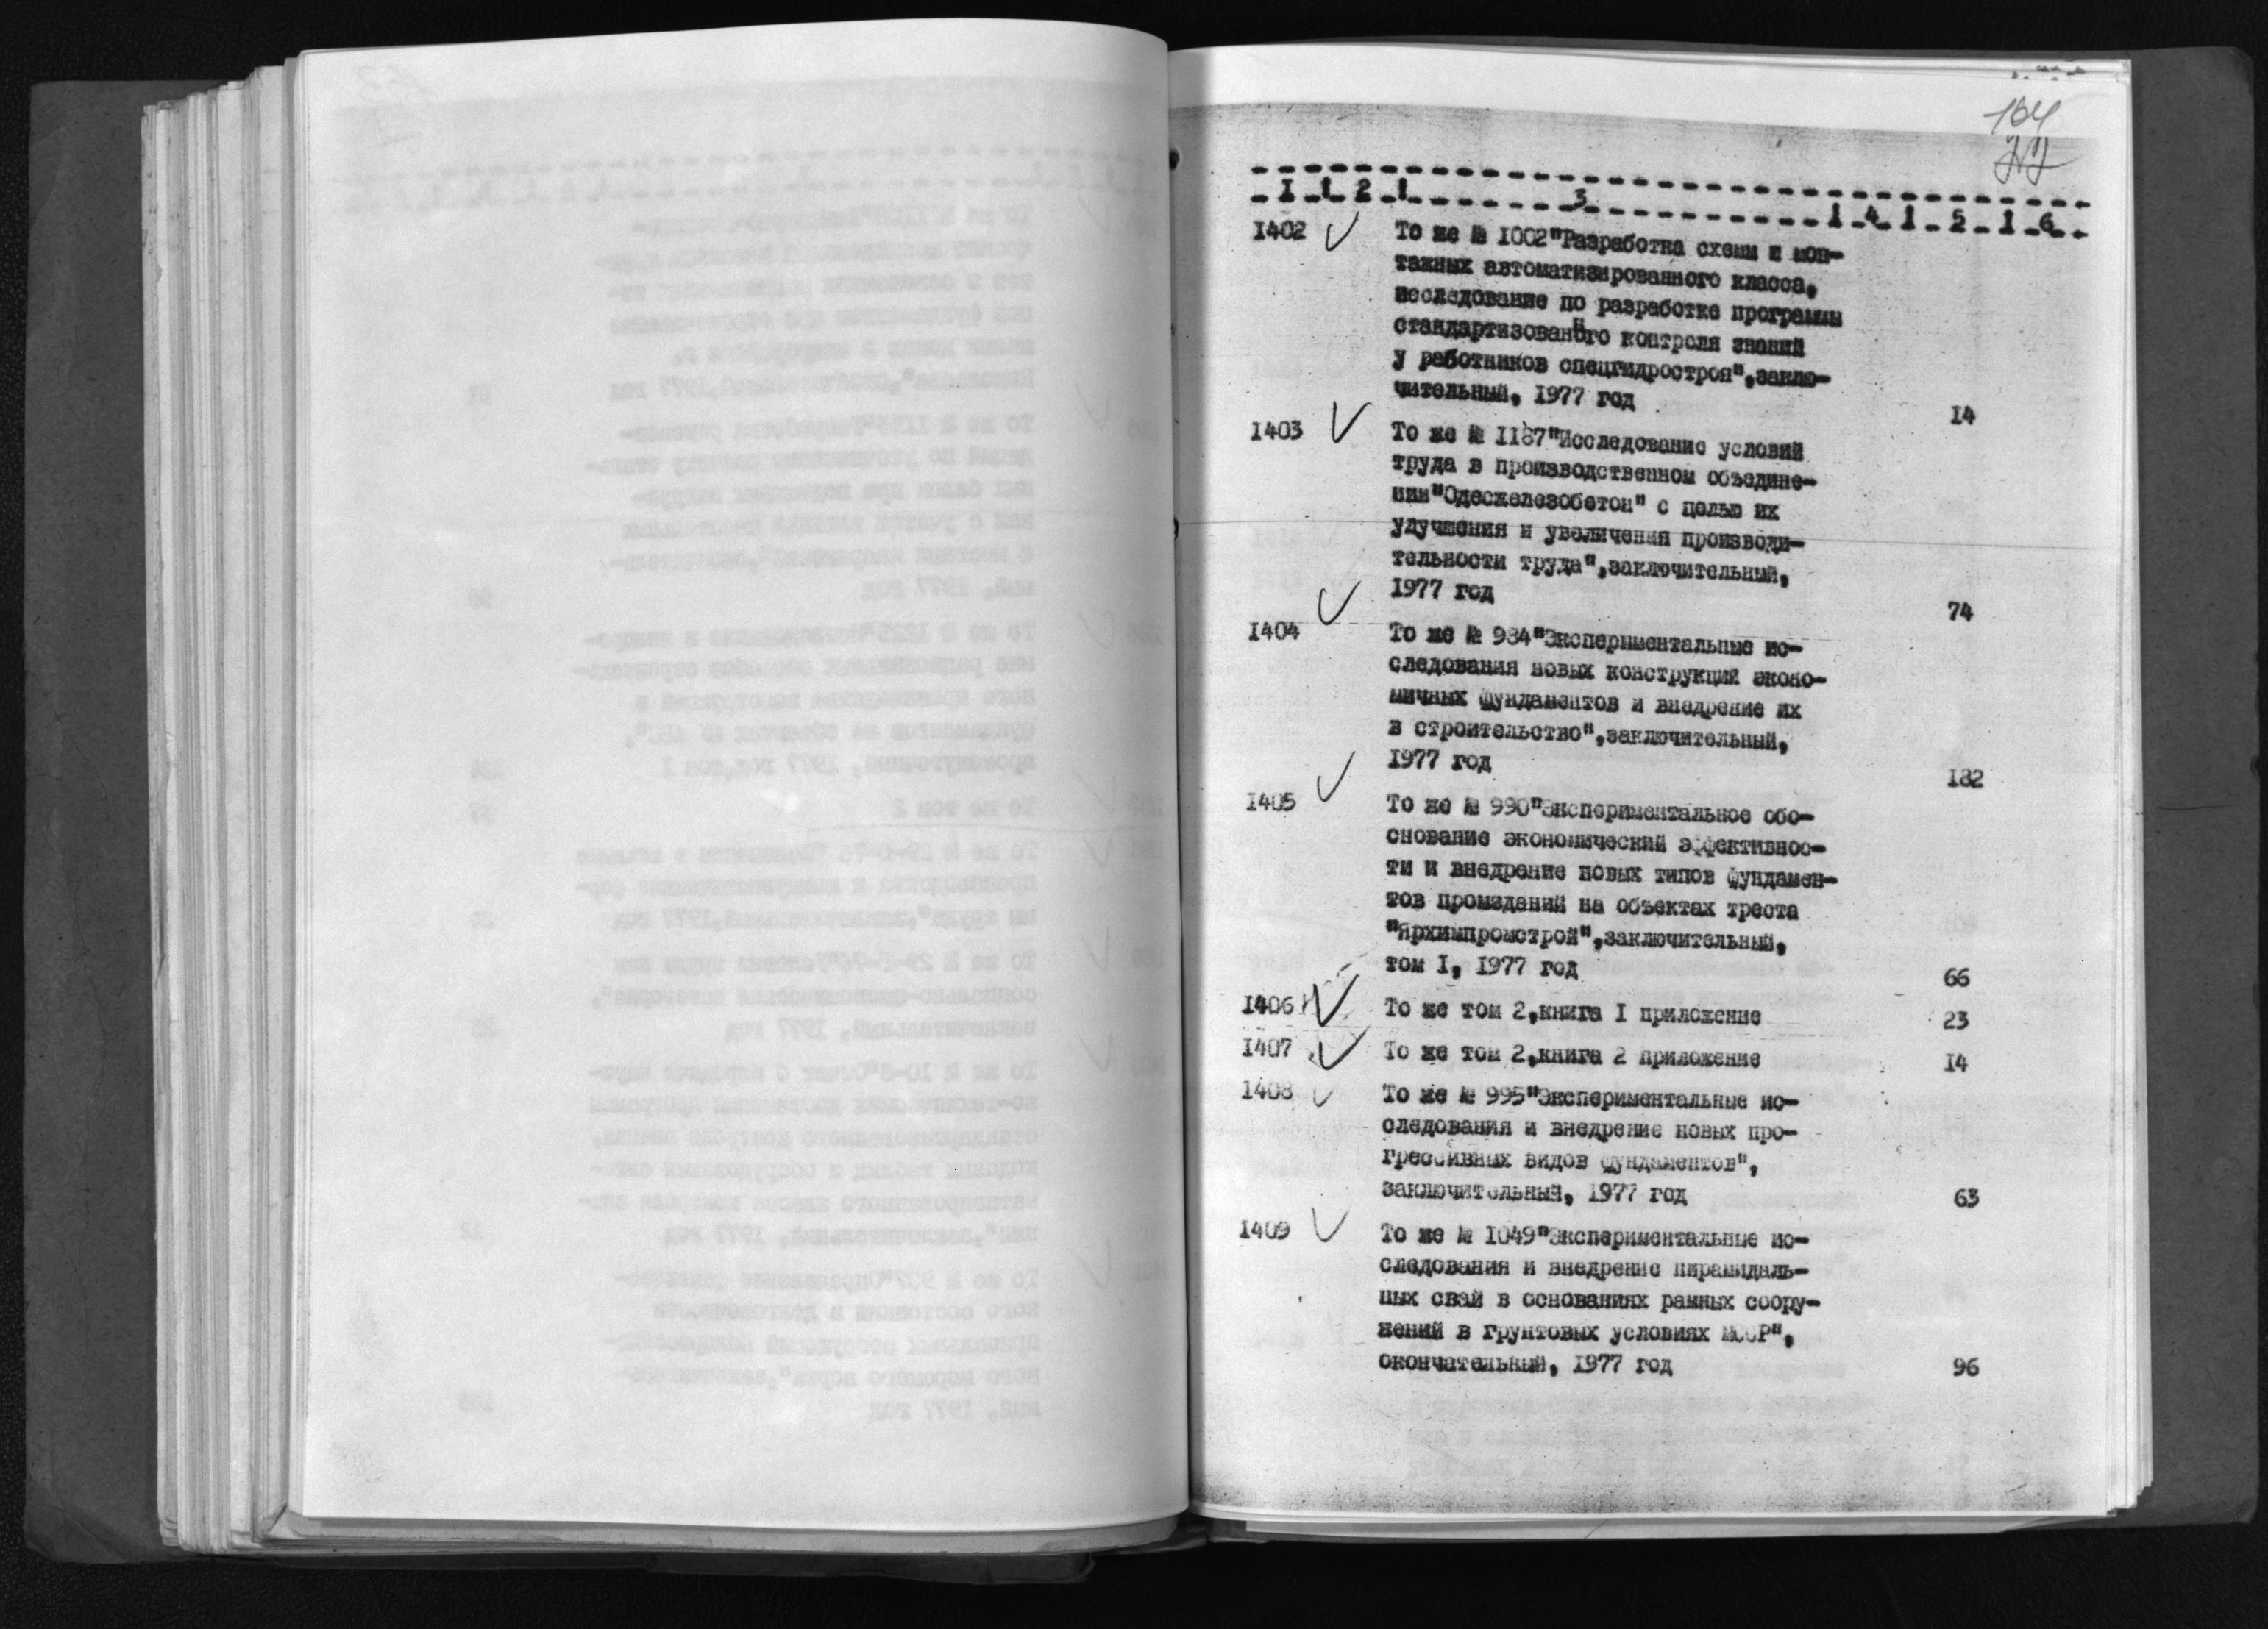 104
1 1 2 1 3 1 4 1 5 1 6
1402 То же № 1002"Разработка схемы и мон-
тажных автоматизированного класса,
исследование по разработке программы
стандартизованного контроля знаний
у работников спецгидростроя",заклю-
чительный, 1977 год 14
1403 То же № 1187"Исследование условий
труда в производственном объедине-
нии"Одесжелезобетон" с целью их
улучшения и увеличения производи-
тельности труда",заключительный,
1977 год 74
1404 То же № 984"Экспериментальные ис-
следования новых конструкций эконо-
мичных фундаментов и внедрение их
в строительство",заключительный,
1977 год 182
1405 То же № 990"Экспериментальное обо-
снование экономический эффективнос-
ти и внедрение новых типов фундамен-
тов промзданий на объектах треста
"Ярхимпромстрой",заключительный,
том I, 1977 год 66
1406 То же том 2,книга I приложение 23
1407 То же том 2,книга 2 приложение 14
1408 То же № 995"Экспериментальные ис-
следования и внедрение новых про-
грессивных видов фундаментов",
заключительный, 1977 год 63
1409 То же № 1049"Экспериментальные ис-
следования и внедрение пирамидаль-
ных свай в основаниях рамных соору-
жений в грунтовых условиях МССР",
окончательный, 1977 год 96